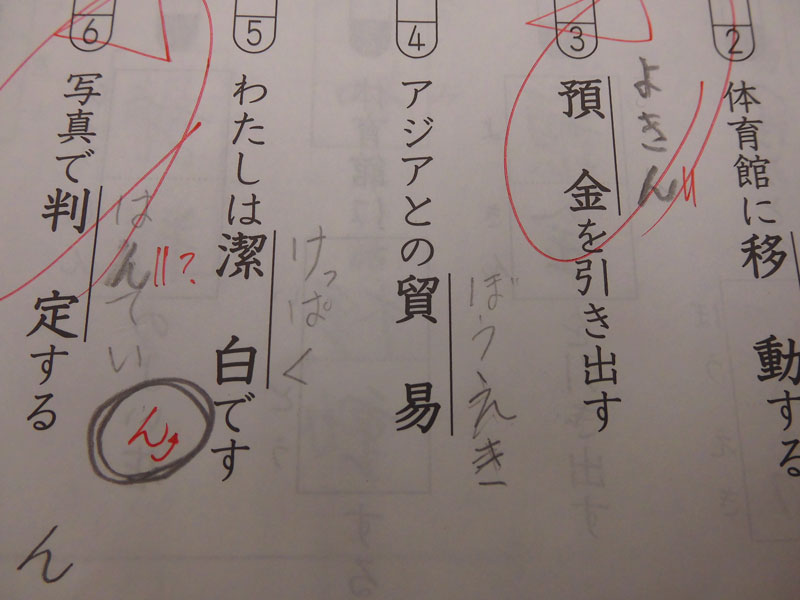 2
体育館に移動する
よきん
3
預金を引き出す
ぼうえき
4
アジアとの貿易
けっぱく
5
わたしは潔白です
はんてい
?
ん
6
写真で判定する
ん